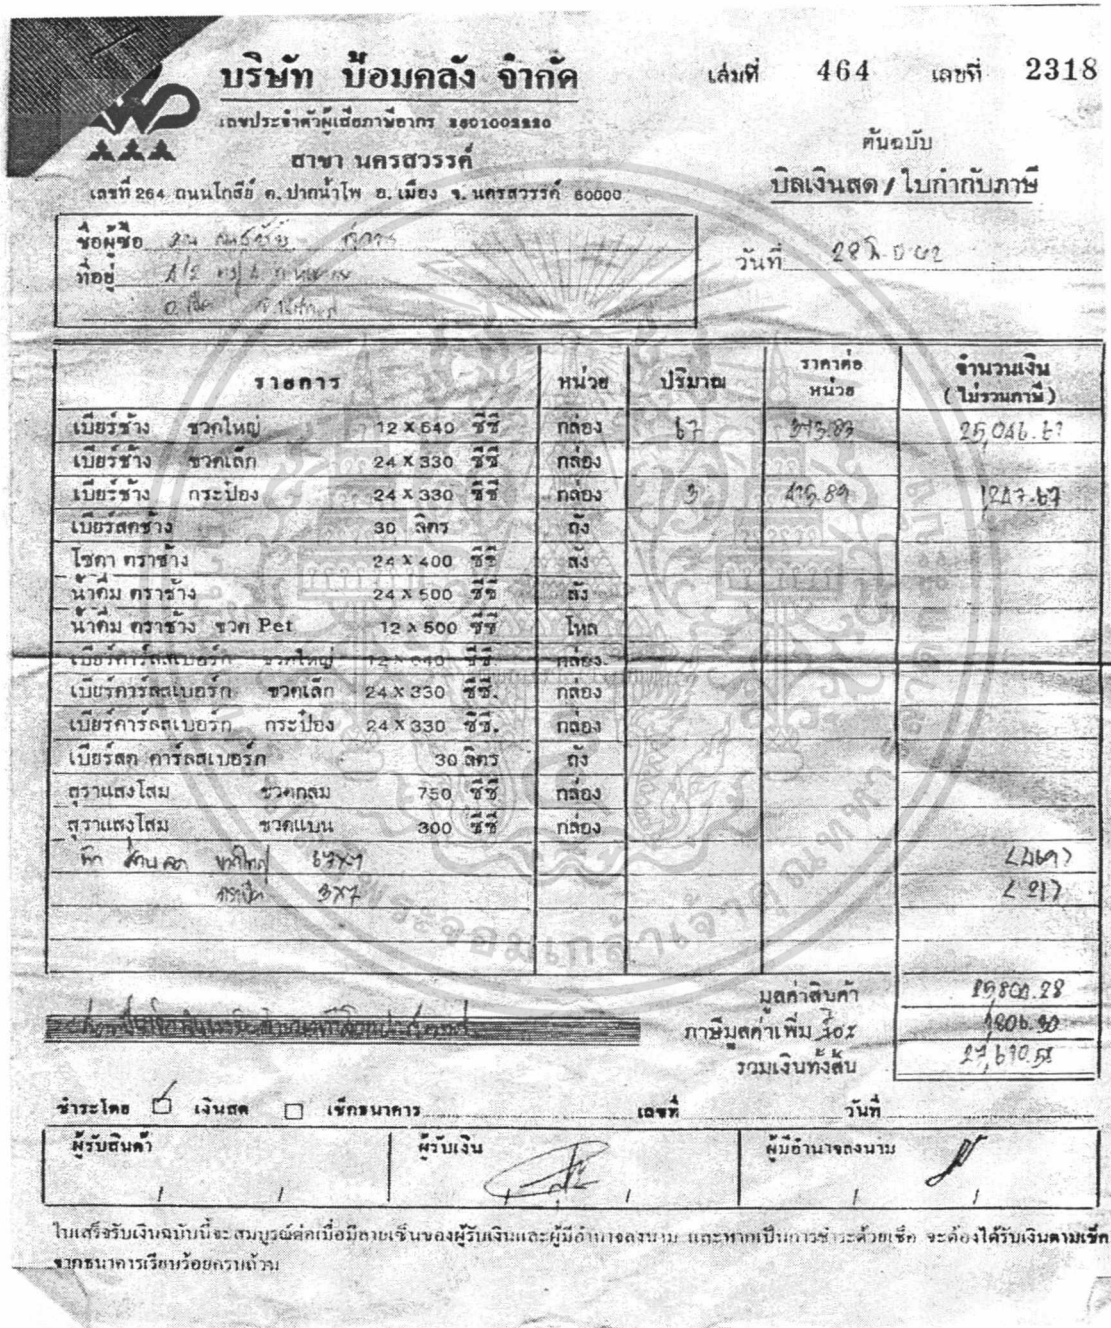 บริษัท ป้อมคลัง จำกัด
เล่มที่ 464 เลขที่ 2318
เลขประจำตัวผู้เสียภาษีอากร 3601002220
ต้นฉบับ
สาขา นครสวรรค์
บิลเงินสด / ใบกำกับภาษี
เลขที่ 264 ถนนโกสีย์ ต. ปากน้ำโพ อ. เมือง จ. นครสวรรค์ 60000
ชื่อผู้ซื้อ
วันที่ 28
ที่อยู่
รายการ หน่วย ปริมาณ ราคาต่อหน่วย จำนวนเงิน (ไม่รวมภาษี)
เบียร์ช้าง ขวดใหญ่ 12 X 640 ซีซี กล่อง 67 373.83 25,046.61
เบียร์ช้าง ขวดเล็ก 24 X 330 ซีซี กล่อง
เบียร์ช้าง กระป๋อง 24 X 330 ซีซี กล่อง 3 415.89 1247.67
เบียร์สดช้าง 30 ลิตร ถัง
โซดา ตราช้าง 24 X 400 ซีซี ลัง
น้ำดื่ม ตราช้าง 24 X 500 ซีซี ลัง
น้ำดื่ม ตราช้าง ขวด Pet 12 X 500 ซีซี โหล
เบียร์คาร์ลสเบอร์ก ขวดใหญ่ 12 X 640 ซีซี. กล่อง.
เบียร์คาร์ลสเบอร์ก ขวดเล็ก 24 X 330 ซีซี. กล่อง
เบียร์คาร์ลสเบอร์ก กระป๋อง 24 X 330 ซีซี. กล่อง
เบียร์สด คาร์ลสเบอร์ก 30 ลิตร ถัง
สุราแสงโสม ขวดกลม 750 ซีซี กล่อง
สุราแสงโสม ขวดแบน 300 ซีซี กล่อง
ขวดใหญ่ 67x7 <469>
3x7 <21>
มูลค่าสินค้า 25,804.28
ภาษีมูลค่าเพิ่ม 1806.30
รวมเงินทั้งสิ้น 27,610.58
ชำระโดย เงินสด เช็คธนาคาร เลขที่ วันที่
ผู้รับสินค้า ผู้รับเงิน ผู้มีอำนาจลงนาม
ใบเสร็จรับเงินฉบับนี้จะสมบูรณ์ต่อเมื่อมีลายเซ็นของผู้รับเงินและผู้มีอำนาจลงนาม และหากเป็นการชำระด้วยเช็ค จะต้องได้รับเงินตามเช็ค
จากธนาคารเรียบร้อยครบถ้วน